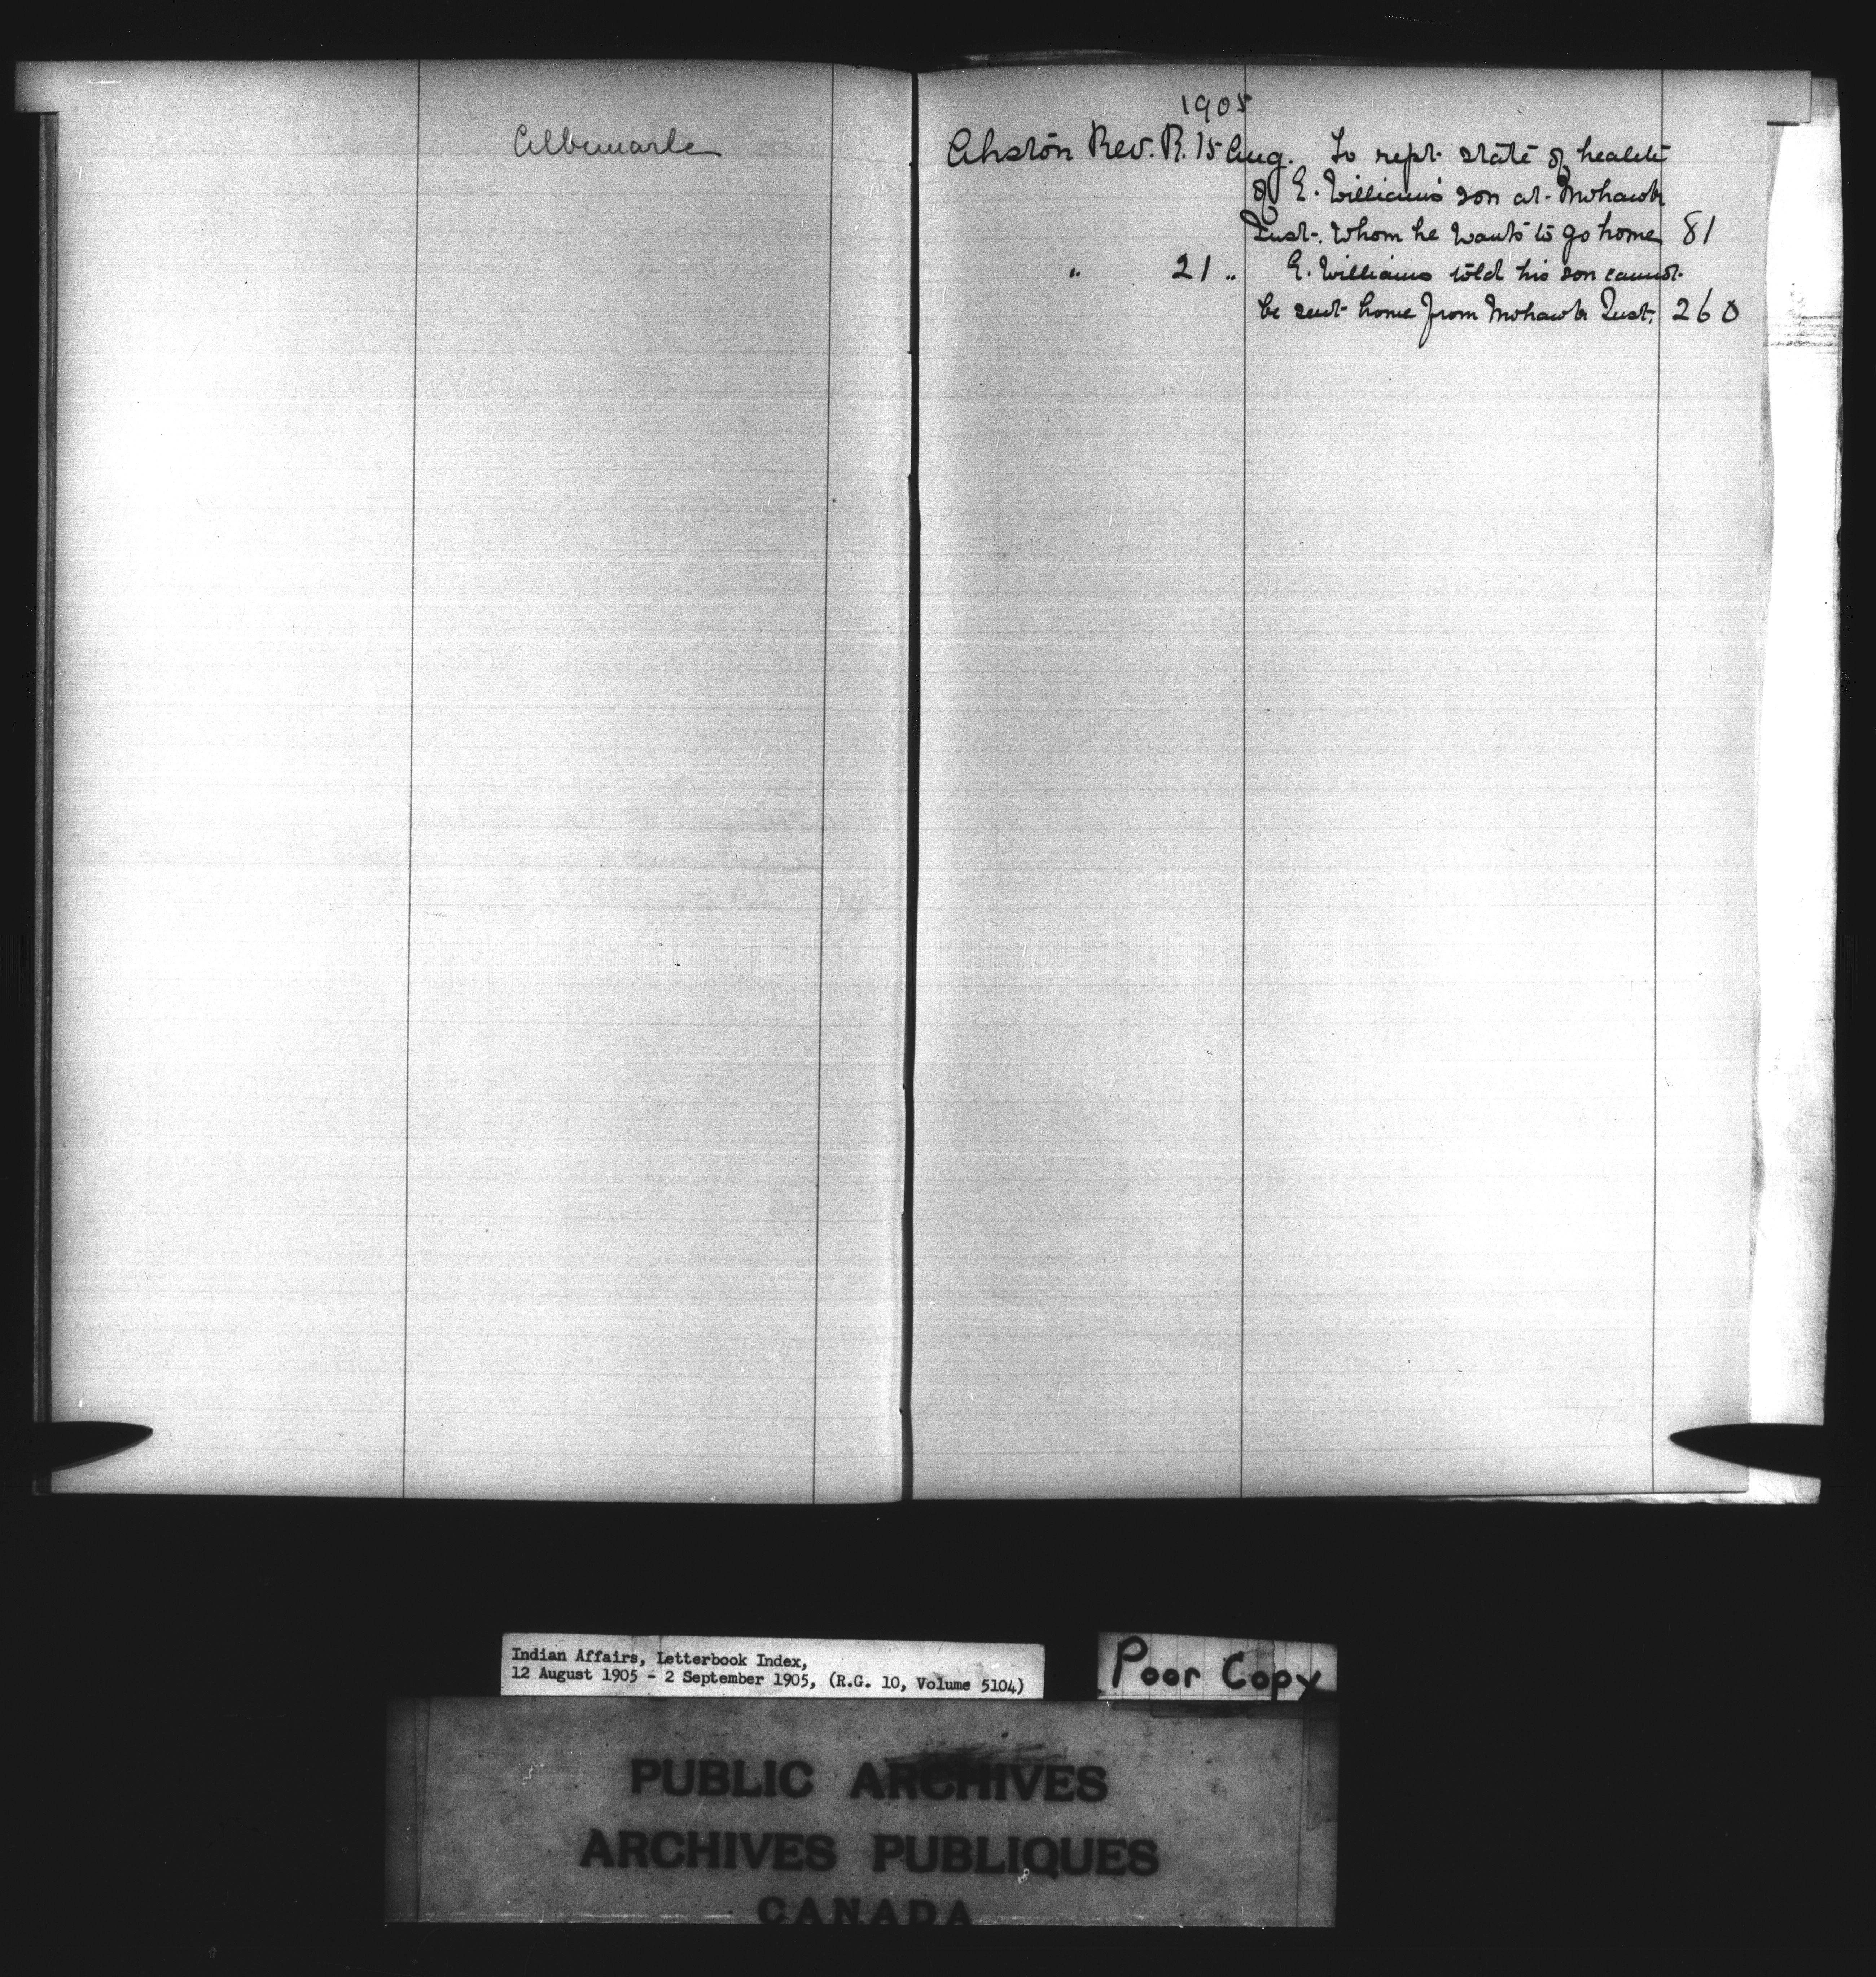 Albemarle
1905
Ahston Rev. R. 15 Aug. To rept. state of health
of E. Williams' son at Mohawk
Inst. whom he wants to go home 81
" 21 " E. Williams told his son cannot
be sent home from Mohawk Inst. 260
Indian Affairs, Letterbook Index,
12 August 1905 - 2 September 1905, (R.G. 10, Volume 5104)
Poor Copy
PUBLIC ARCHIVES
ARCHIVES PUBLIQUES
CANADA